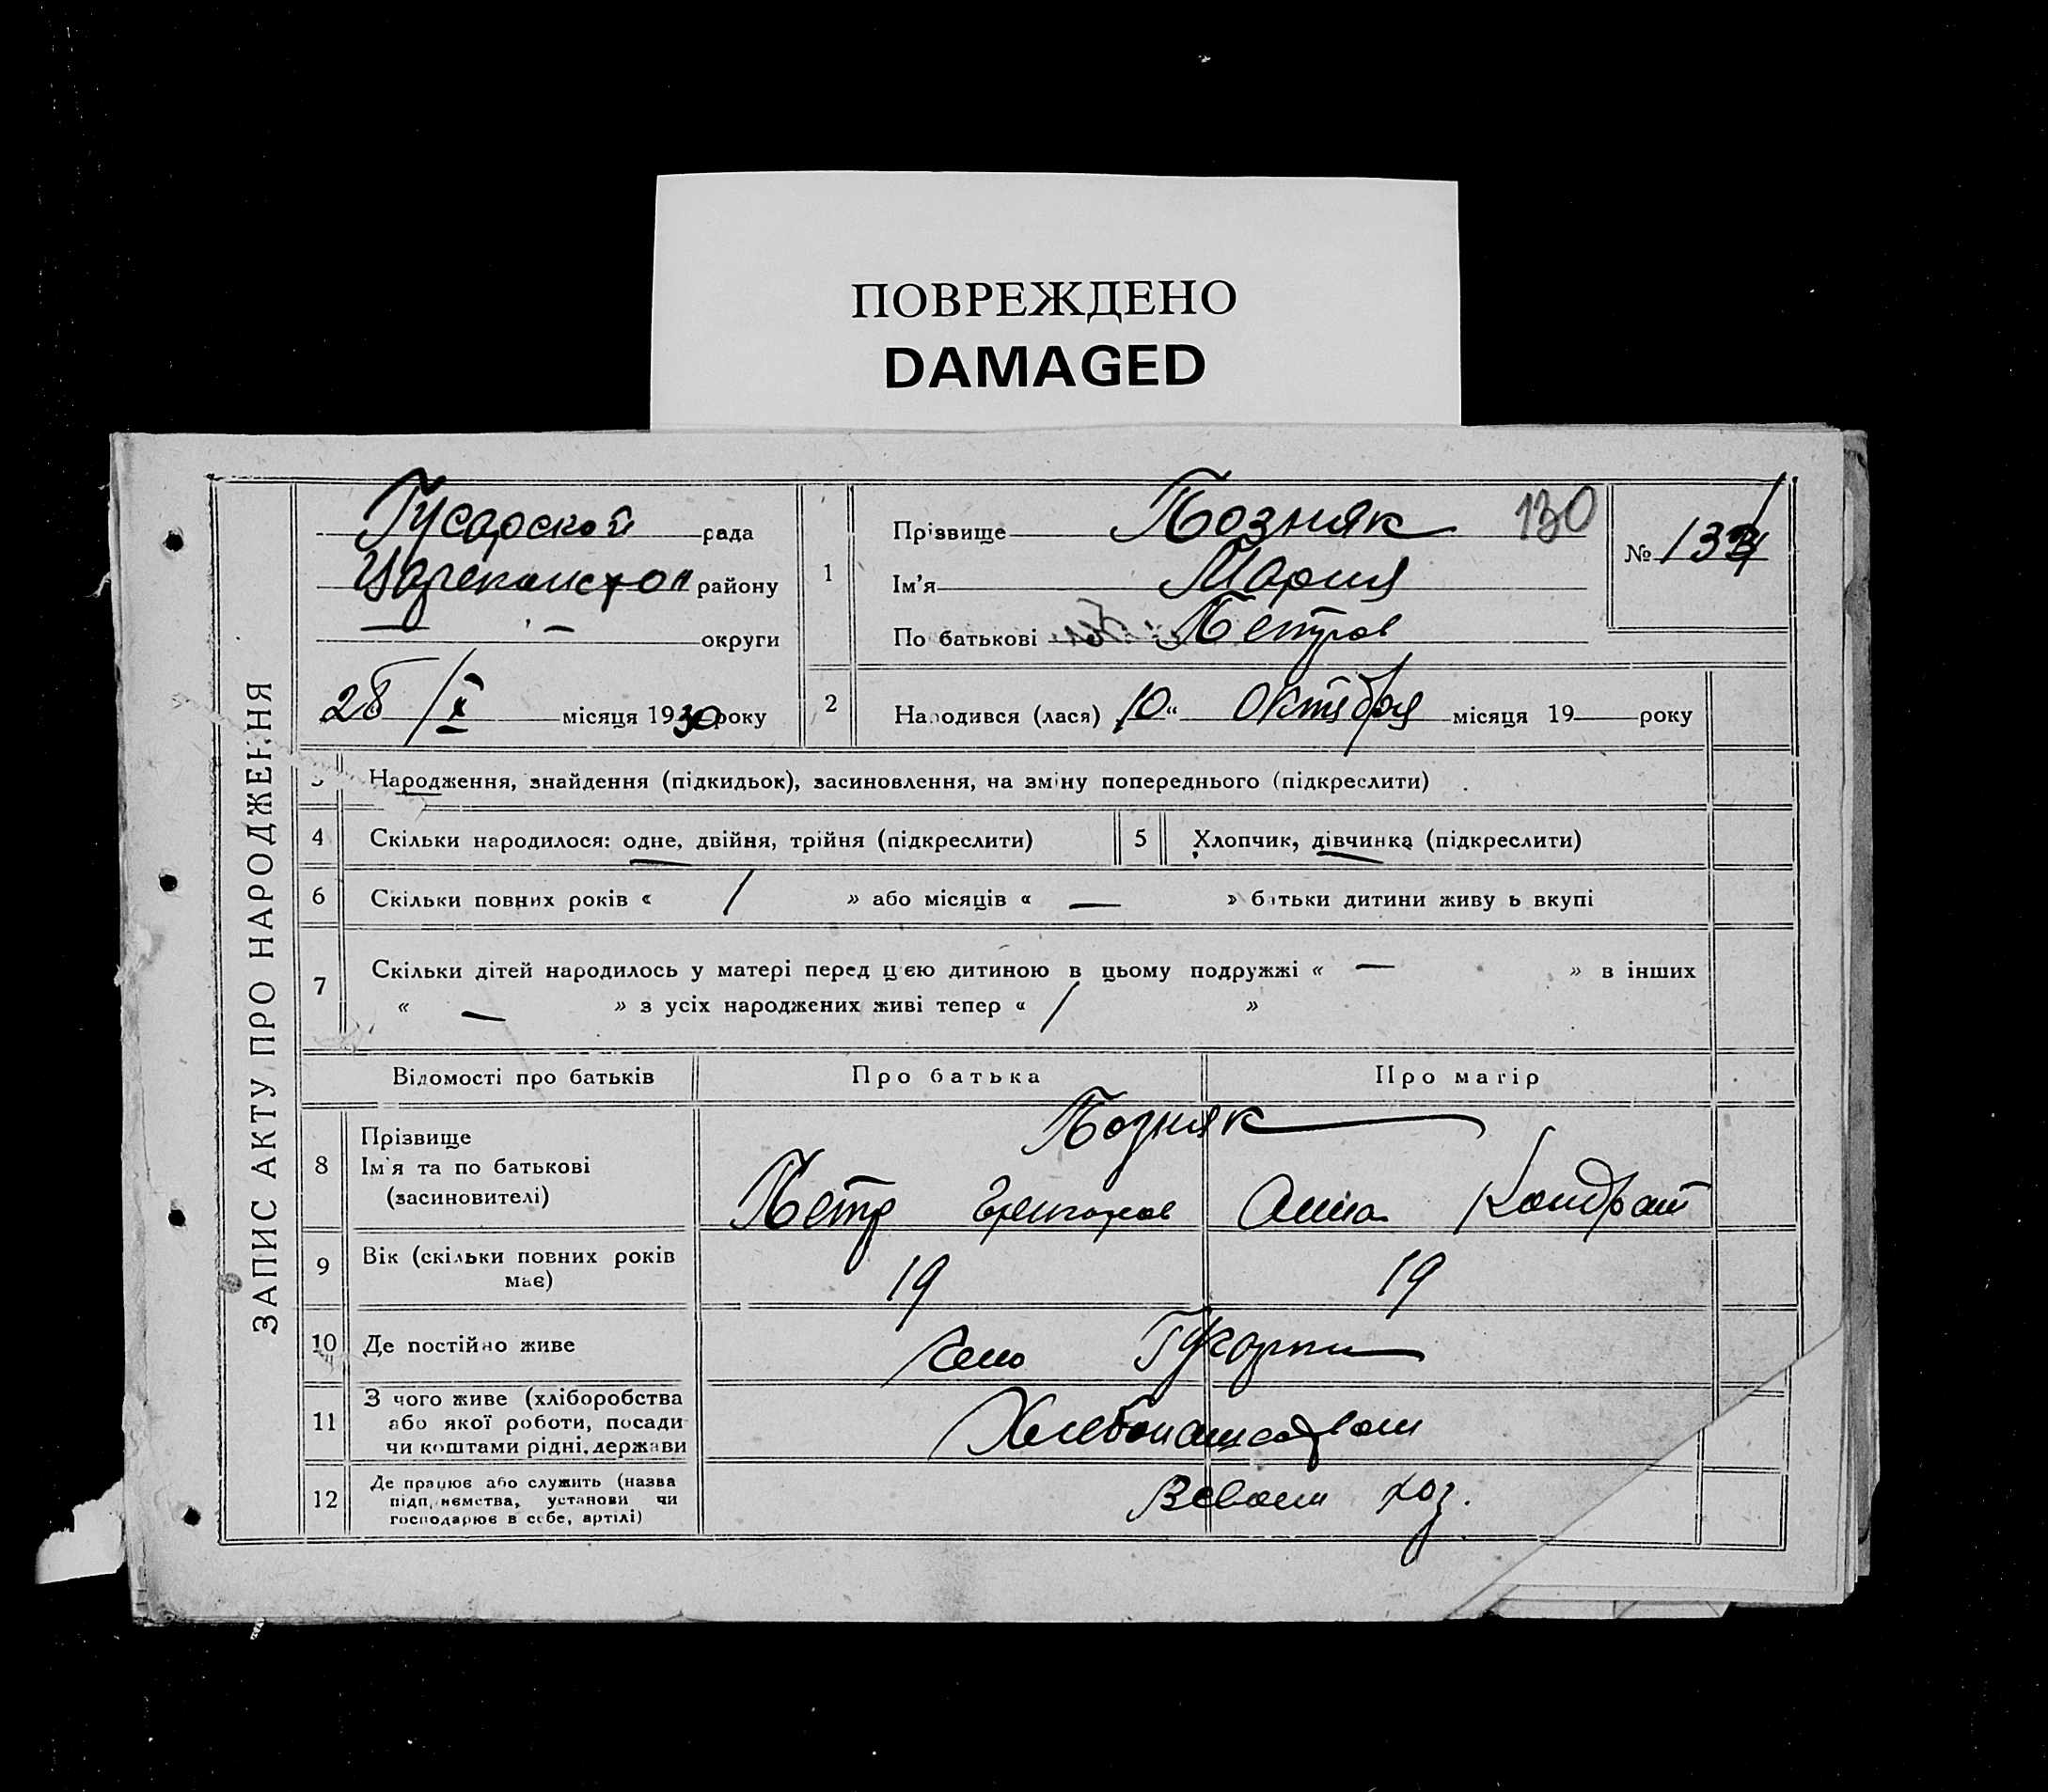 ПОВРЕЖДЕНО
DAMAGED
ЗАПИС АКТУ ПРО НАРОДЖЕННЯ
Гусарской рада
району
округи
28/X місяця 1930 року
1
Прізвище Позняк 130
Ім'я Мария
По батькові Петров
№ 13
2
Народився (лася) 10 " Октября місяця 19 року
3 Народження, знайдення (підкидьок), засиновлення, на зміну попереднього (підкреслити)
4 Скільки народилося: одне, двійня, трійня (підкреслити) 5 Хлопчик, дівчинка (підкреслити)
6 Скільки повних років « 1 » або місяців « — » батьки дитини живуть вкупі
7 Скільки дітей народилось у матері перед цією дитиною в цьому подружжі « — » в інших
« — » з усіх народжених живі тепер « 1 »
Відомості про батьків Про батька Про матір
8 Прізвище
Ім'я та по батькові
(засиновителі)
Позняк
Петр Григоров Анна Кондрат
9 Вік (скільки повних років
має)
19 19
10 Де постійно живе Село Гусарки
11 З чого живе (хліборобства
або якої роботи, посади
чи коштами рідні, держави
Хлебопашеством
12 Де працює або служить (назва
підприємства, установи чи
господарює в себе, артілі)
В своем хоз.